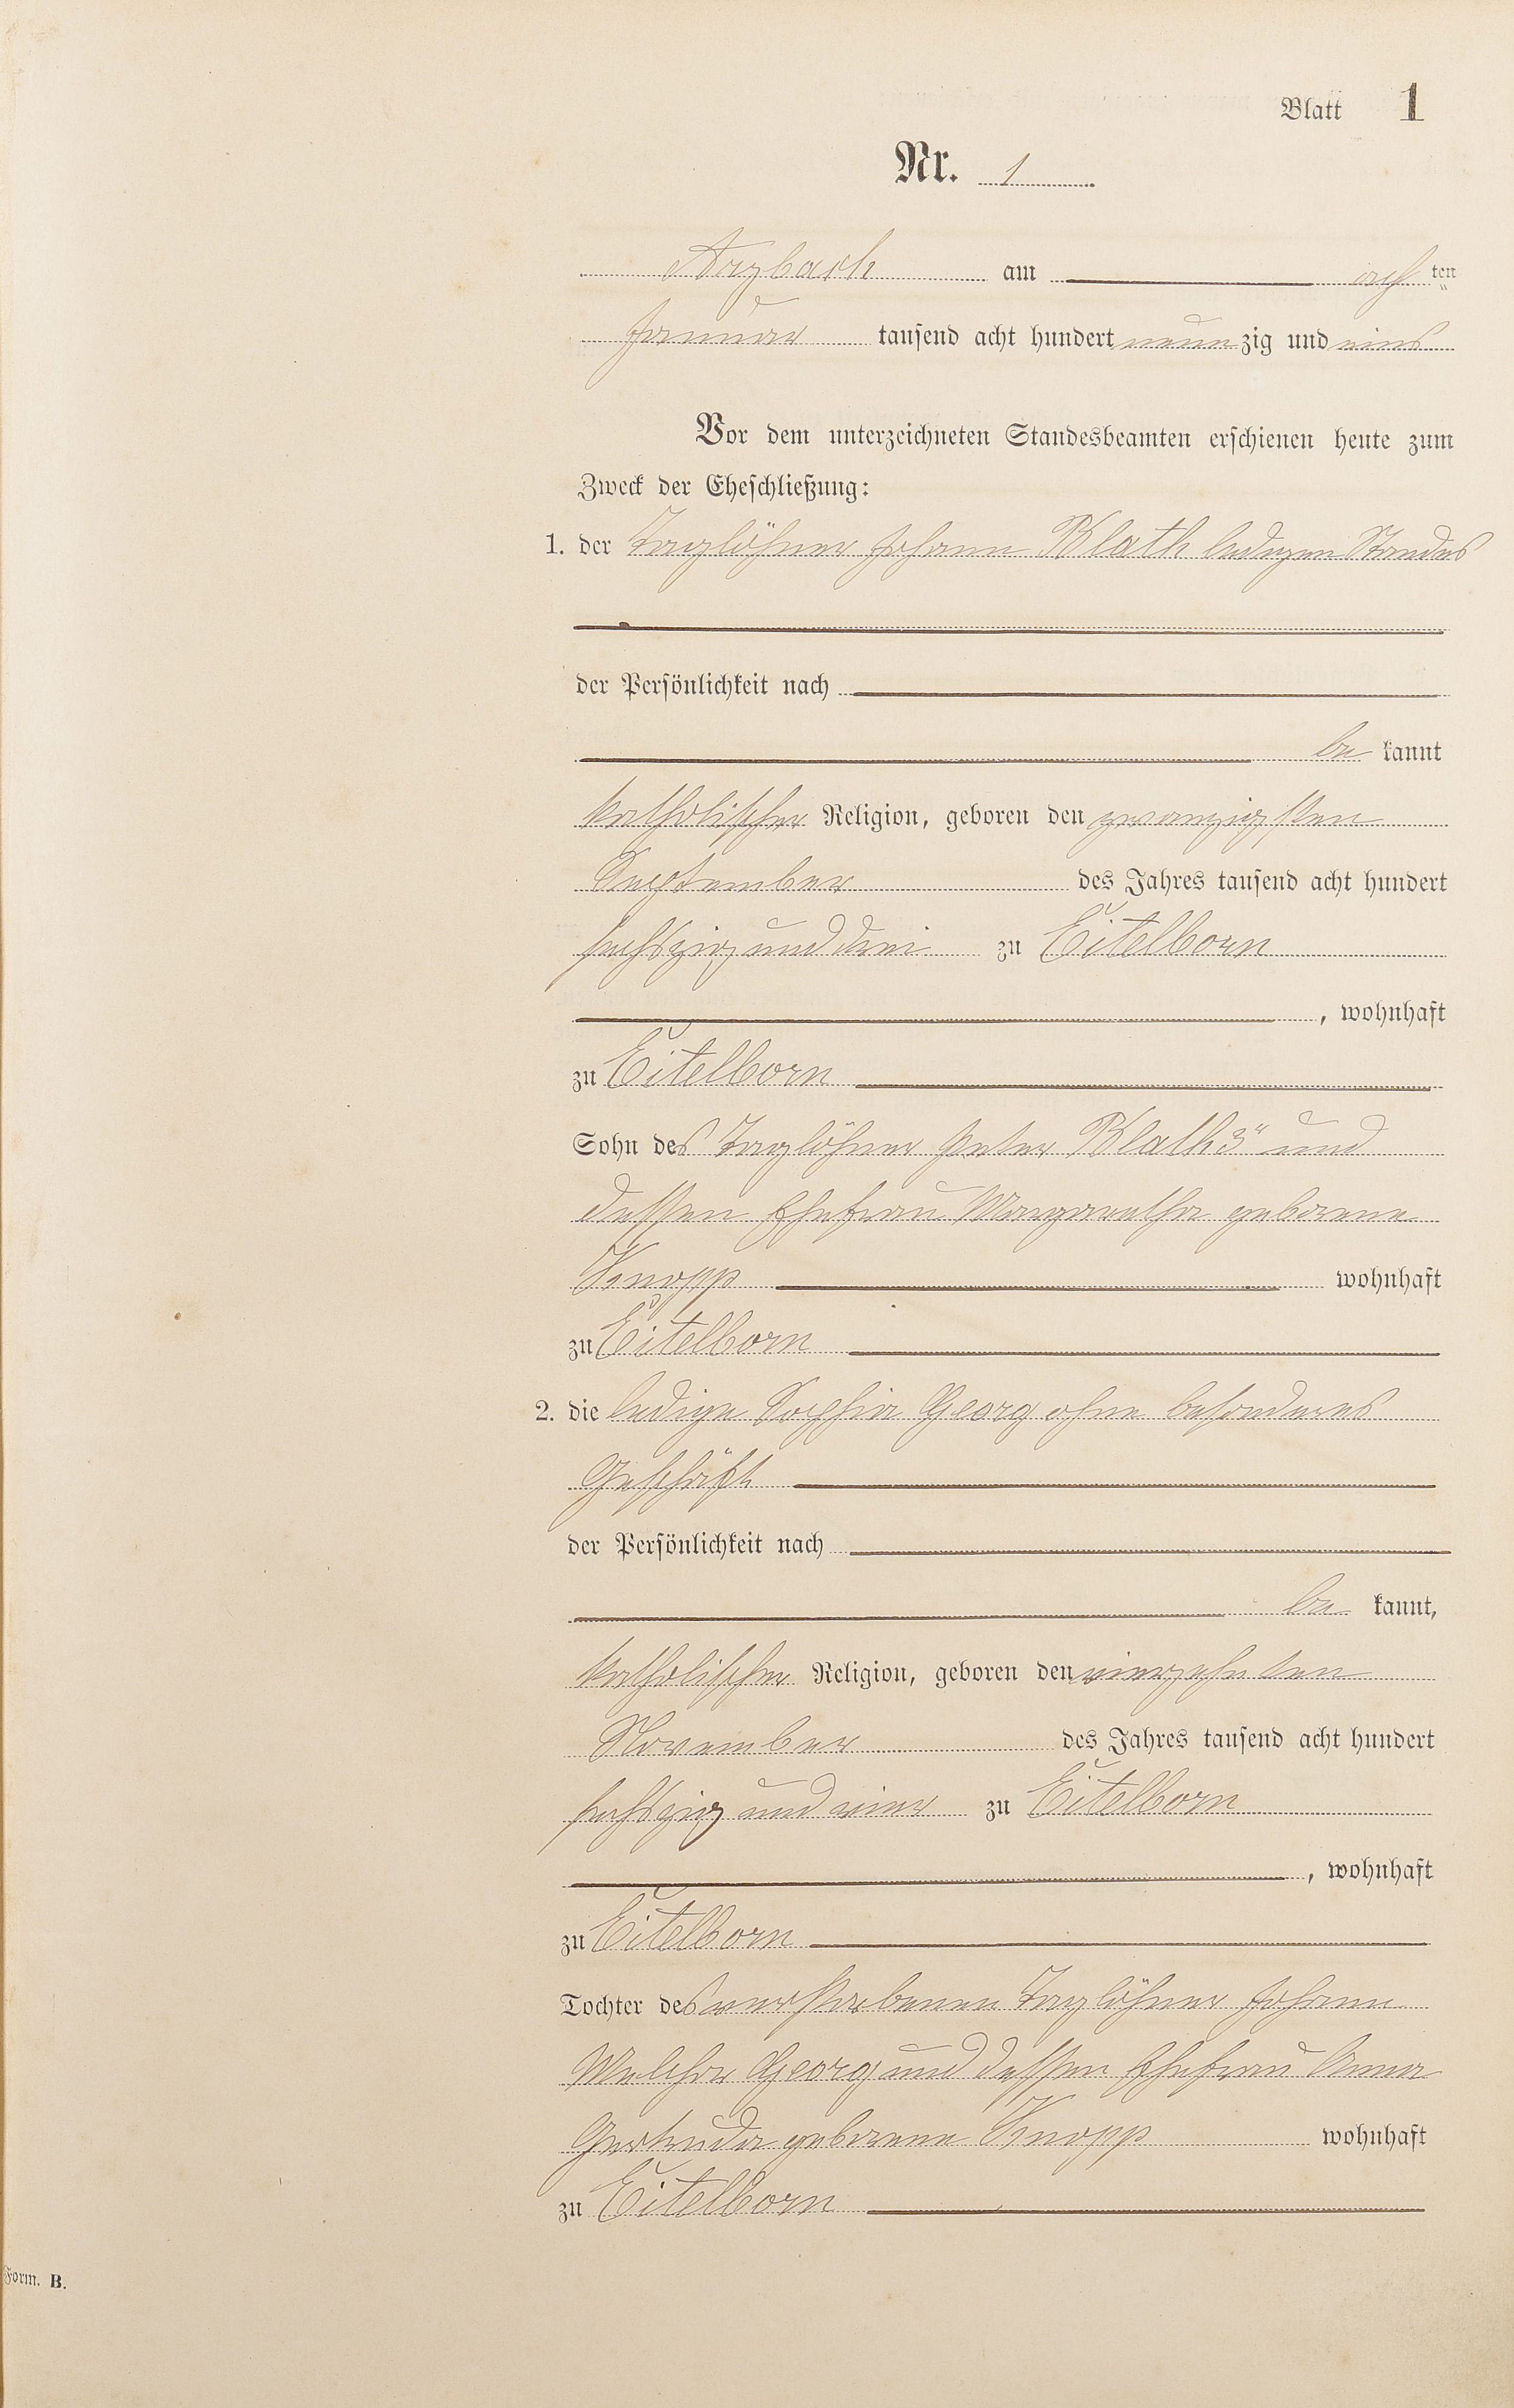 Blatt 1
Nr. 1
Arzbach am ach ten
Januar tausend acht hundert neun zig und eins
Vor dem unterzeichneten Standesbeamten erschienen heute zum
Zweck der Eheschließung:
1. der Taglöhner Johann Klath ledigen Standes
der Persönlichkeit nach
be kannt
katholischer Religion, geboren den zwanzigsten
September des Jahres tausend acht hundert
sechszig und drei zu Eitelborn
, wohnhaft
zu Eitelborn
Sohn des Taglöhner Peter Klath 3" und
dessen Ehefrau Margaretha geborene
Knopp wohnhaft
zu Eitelborn
2. die ledige Sophia Georg ohne besonderes
Geschäft
der Persönlichkeit nach
be kannt,
katholischer Religion, geboren den vierzehnten
November des Jahres tausend acht hundert
sechszig und vier zu Eitelborn
, wohnhaft
zu Eitelborn
Tochter des verstorbenen Taglöhner Johann
Melchor Georg und dessen Ehefrau Anna
Gertruda geborene Knopp wohnhaft
zu Eitelborn
Form. B.